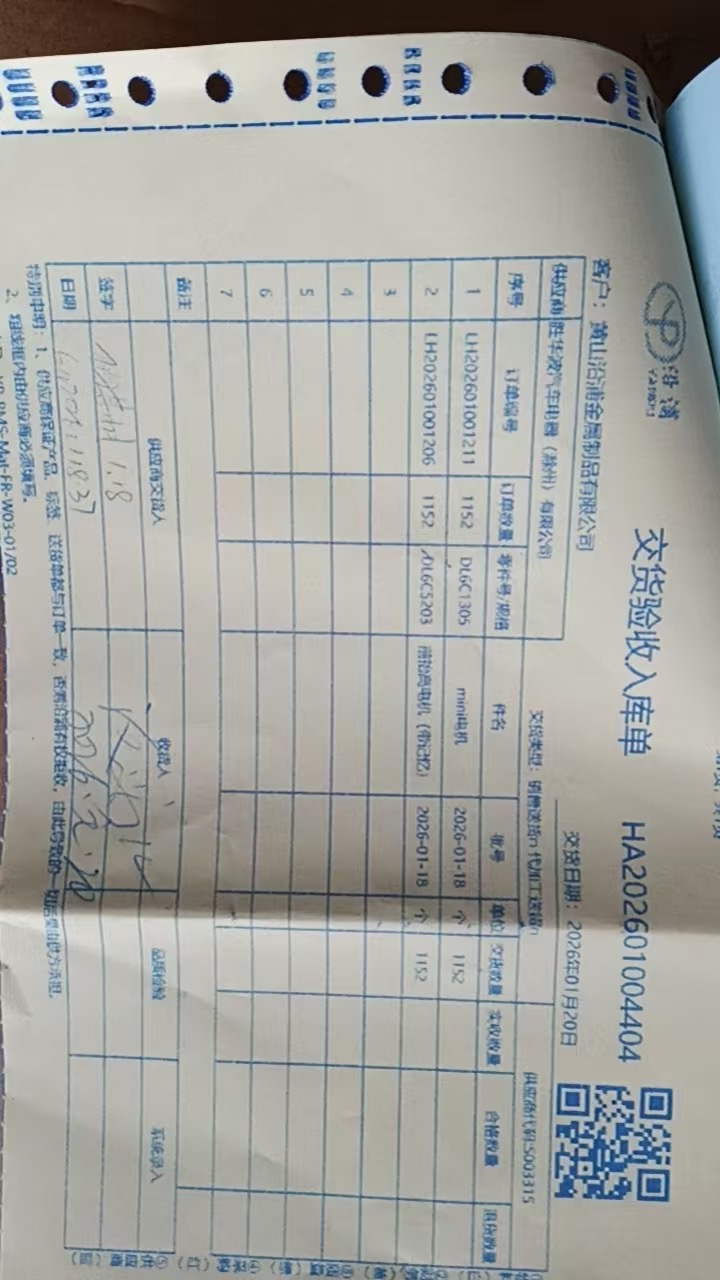 沿浦
交货验收入库单 HA202601004404
客户：黄山沿浦金属制品有限公司 交货日期：2026年01月20日
供应商 胜华波汽车电器（滁州）有限公司 交货类型：销售送货 代加工送货 供应商代码:S003315
序号 订单编号 订单数量 零件号/规格 件名 批号 单位 交货数量 实收数量 合格数量 退货数量
1 LH202601001211 1152 DL6C1305 mini电机 2026-01-18 个 1152
2 LH202601001206 1152 DL6C5203 前抬高电机（带记忆） 2026-01-18 个 1152
3
4
5
6
7
备注
供应商交货人 收货人 品质检验 系统录入
签字 1.18
日期
特别申明：1、供应商保证产品、标签、送货单都与订单一致，否则沿浦有权拒收，由此导致的一切后果由供方承担。
2、粗线框内由供应商必须填写。